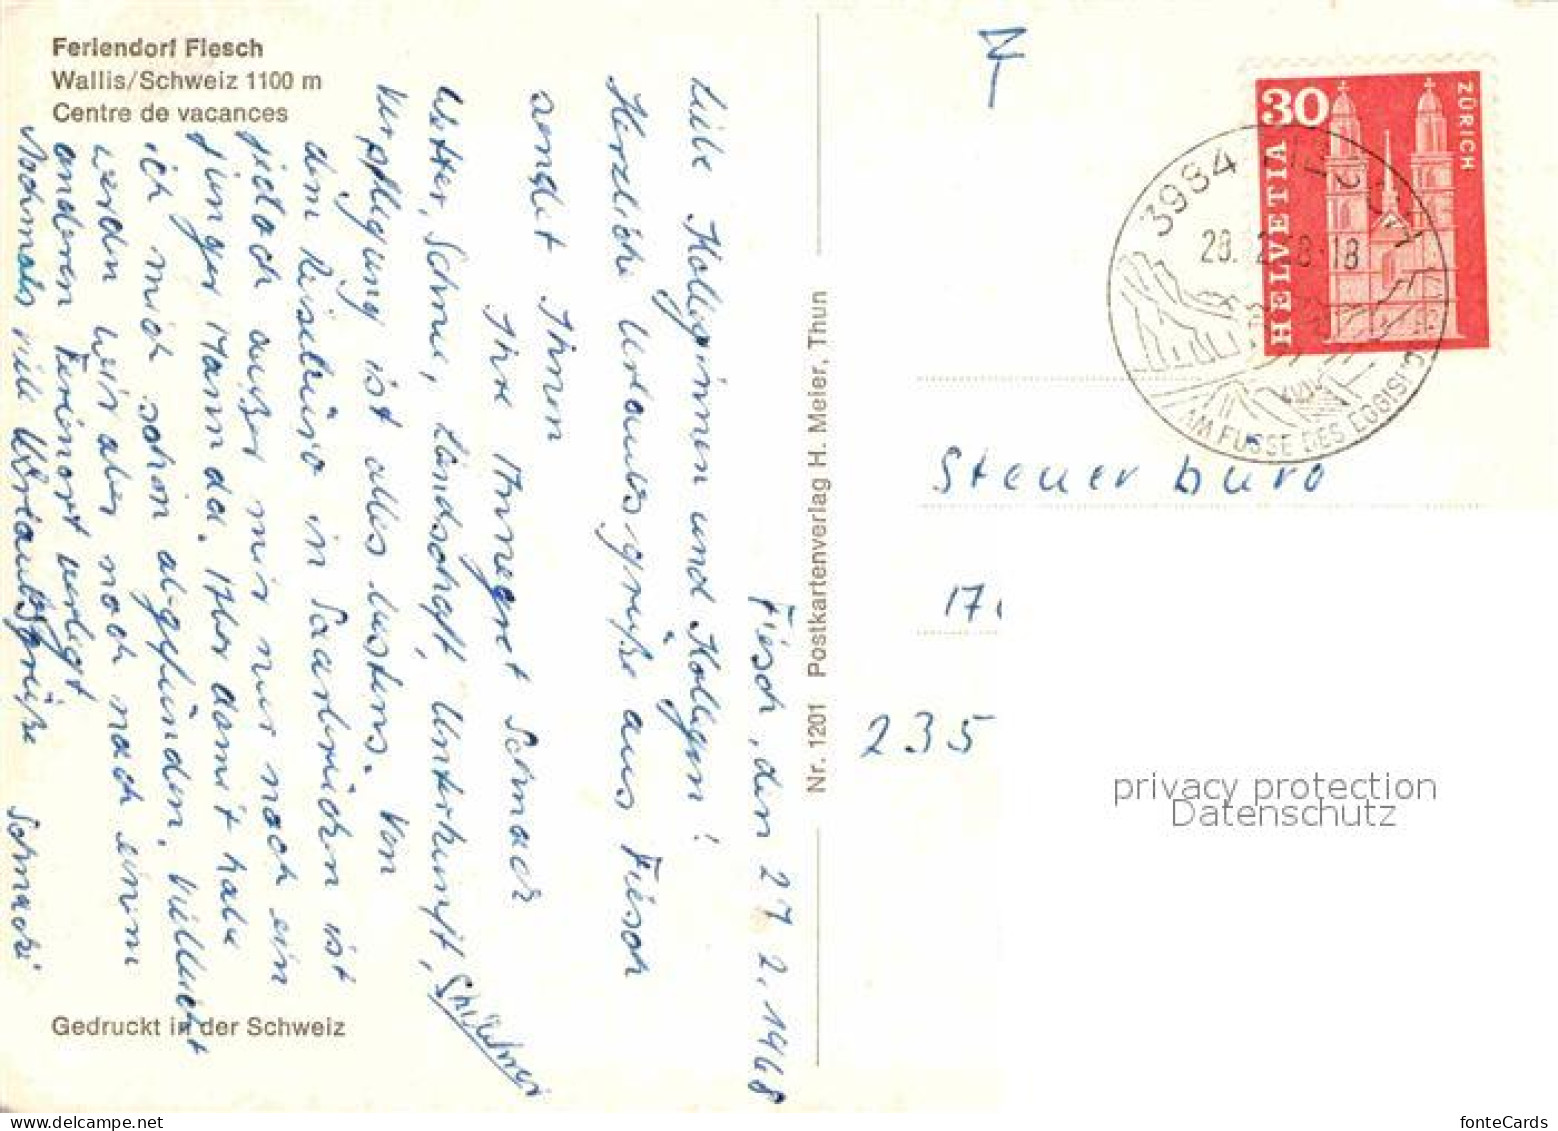 Feriendorf Fiesch
Wallis/Schweiz 1100 m
Centre de vacances
Fiesch, den 27.2.1968
Liebe Kolleginnen und Kollegen!
Herzliche Urlaubsgrüße aus Fiesch
sendet Ihnen
Ihre Annegret Schnack
Wetter, Schnee, Landschaft, Unterkunft,
Verpflegung ist alles bestens. Von
dem Reisebüro in Saarbrücken ist
jedoch außer mir nur noch ein
junger Mann da. Aber damit habe
ich mich schon abgefunden. Vielleicht
werden wir aber noch nach einem
anderen Ferienort verlegt
Nochmals viele Urlaubsgrüße
Gedruckt in der Schweiz
Nr. 1201 Postkartenverlag H. Meier, Thun
30
HELVETIA
ZÜRICH
3984 FIESCH
28. 2. 68-18
AM FUSSE DES EGGISH
Steuerbüro
17
235
privacy protection
Datenschutz
fonteCards